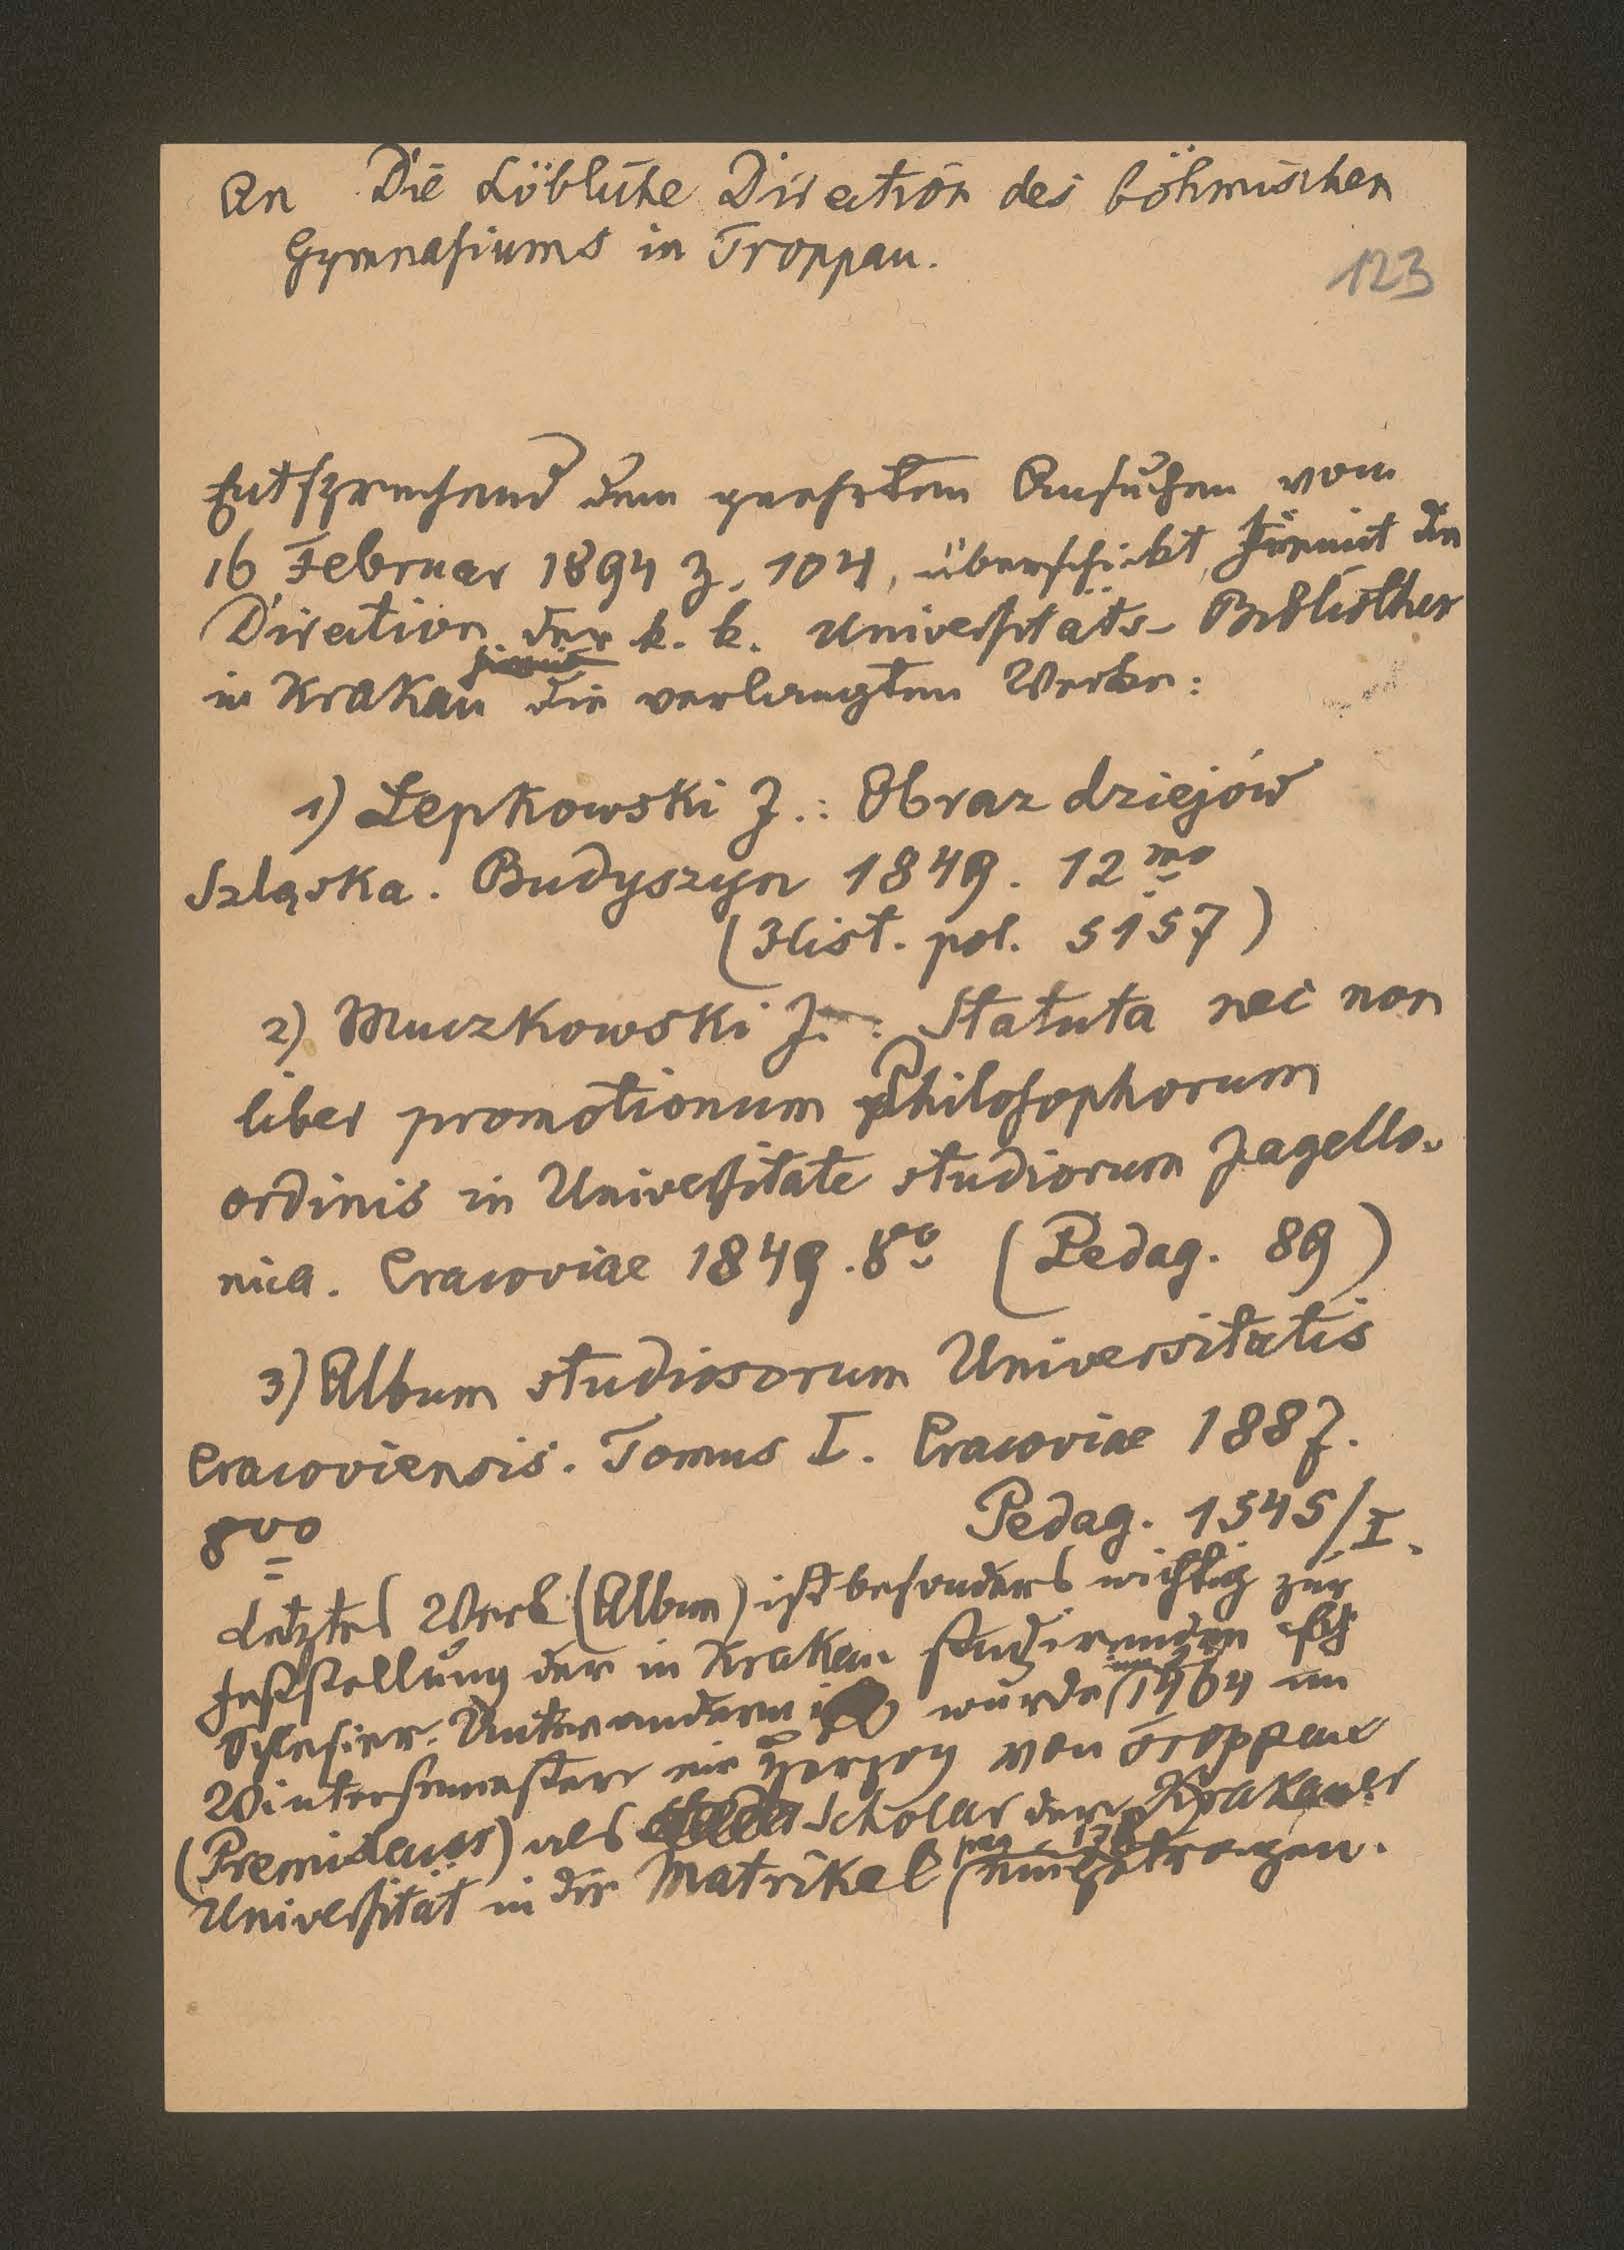 An Die Löbliche Direction des böhmischen
Gymnasiums in Troppau.
123
Entsprechend dem geehrten Ansuchen vom
16 Februar 1894 Z. 104, überschickt hiermit die
Direction der k. k. Universitäts-Bibliothek
hiermit
in Krakau die verlangten Werke:
1) Łepkowski J.: Obraz dziejów
Szląska. Budyszyn 1849. 12mo
(Hist. pol. 5157)
2) Muczkowski J.: Statuta nec non
liber promotionum Philosophorum
ordinis in Universitate studiorum Jagello-
nica. Cracoviae 1849. 8o (Pedag. 89)
3) Album studiosorum Universitatis
Cracoviensis. Tomus I. Cracoviae 1887.
8vo Pedag. 1545/I.
Letztes Werk (Album) ist besonders wichtig zur
Feststellung der in Krakau studirenden
Schlesier. Unter anderem wurde 1464 im
Wintersemester ein Herzog von Troppau
(Premislaus) als Scholar der Krakauer
pag. 178
Universität in die Matrikel eingetragen.